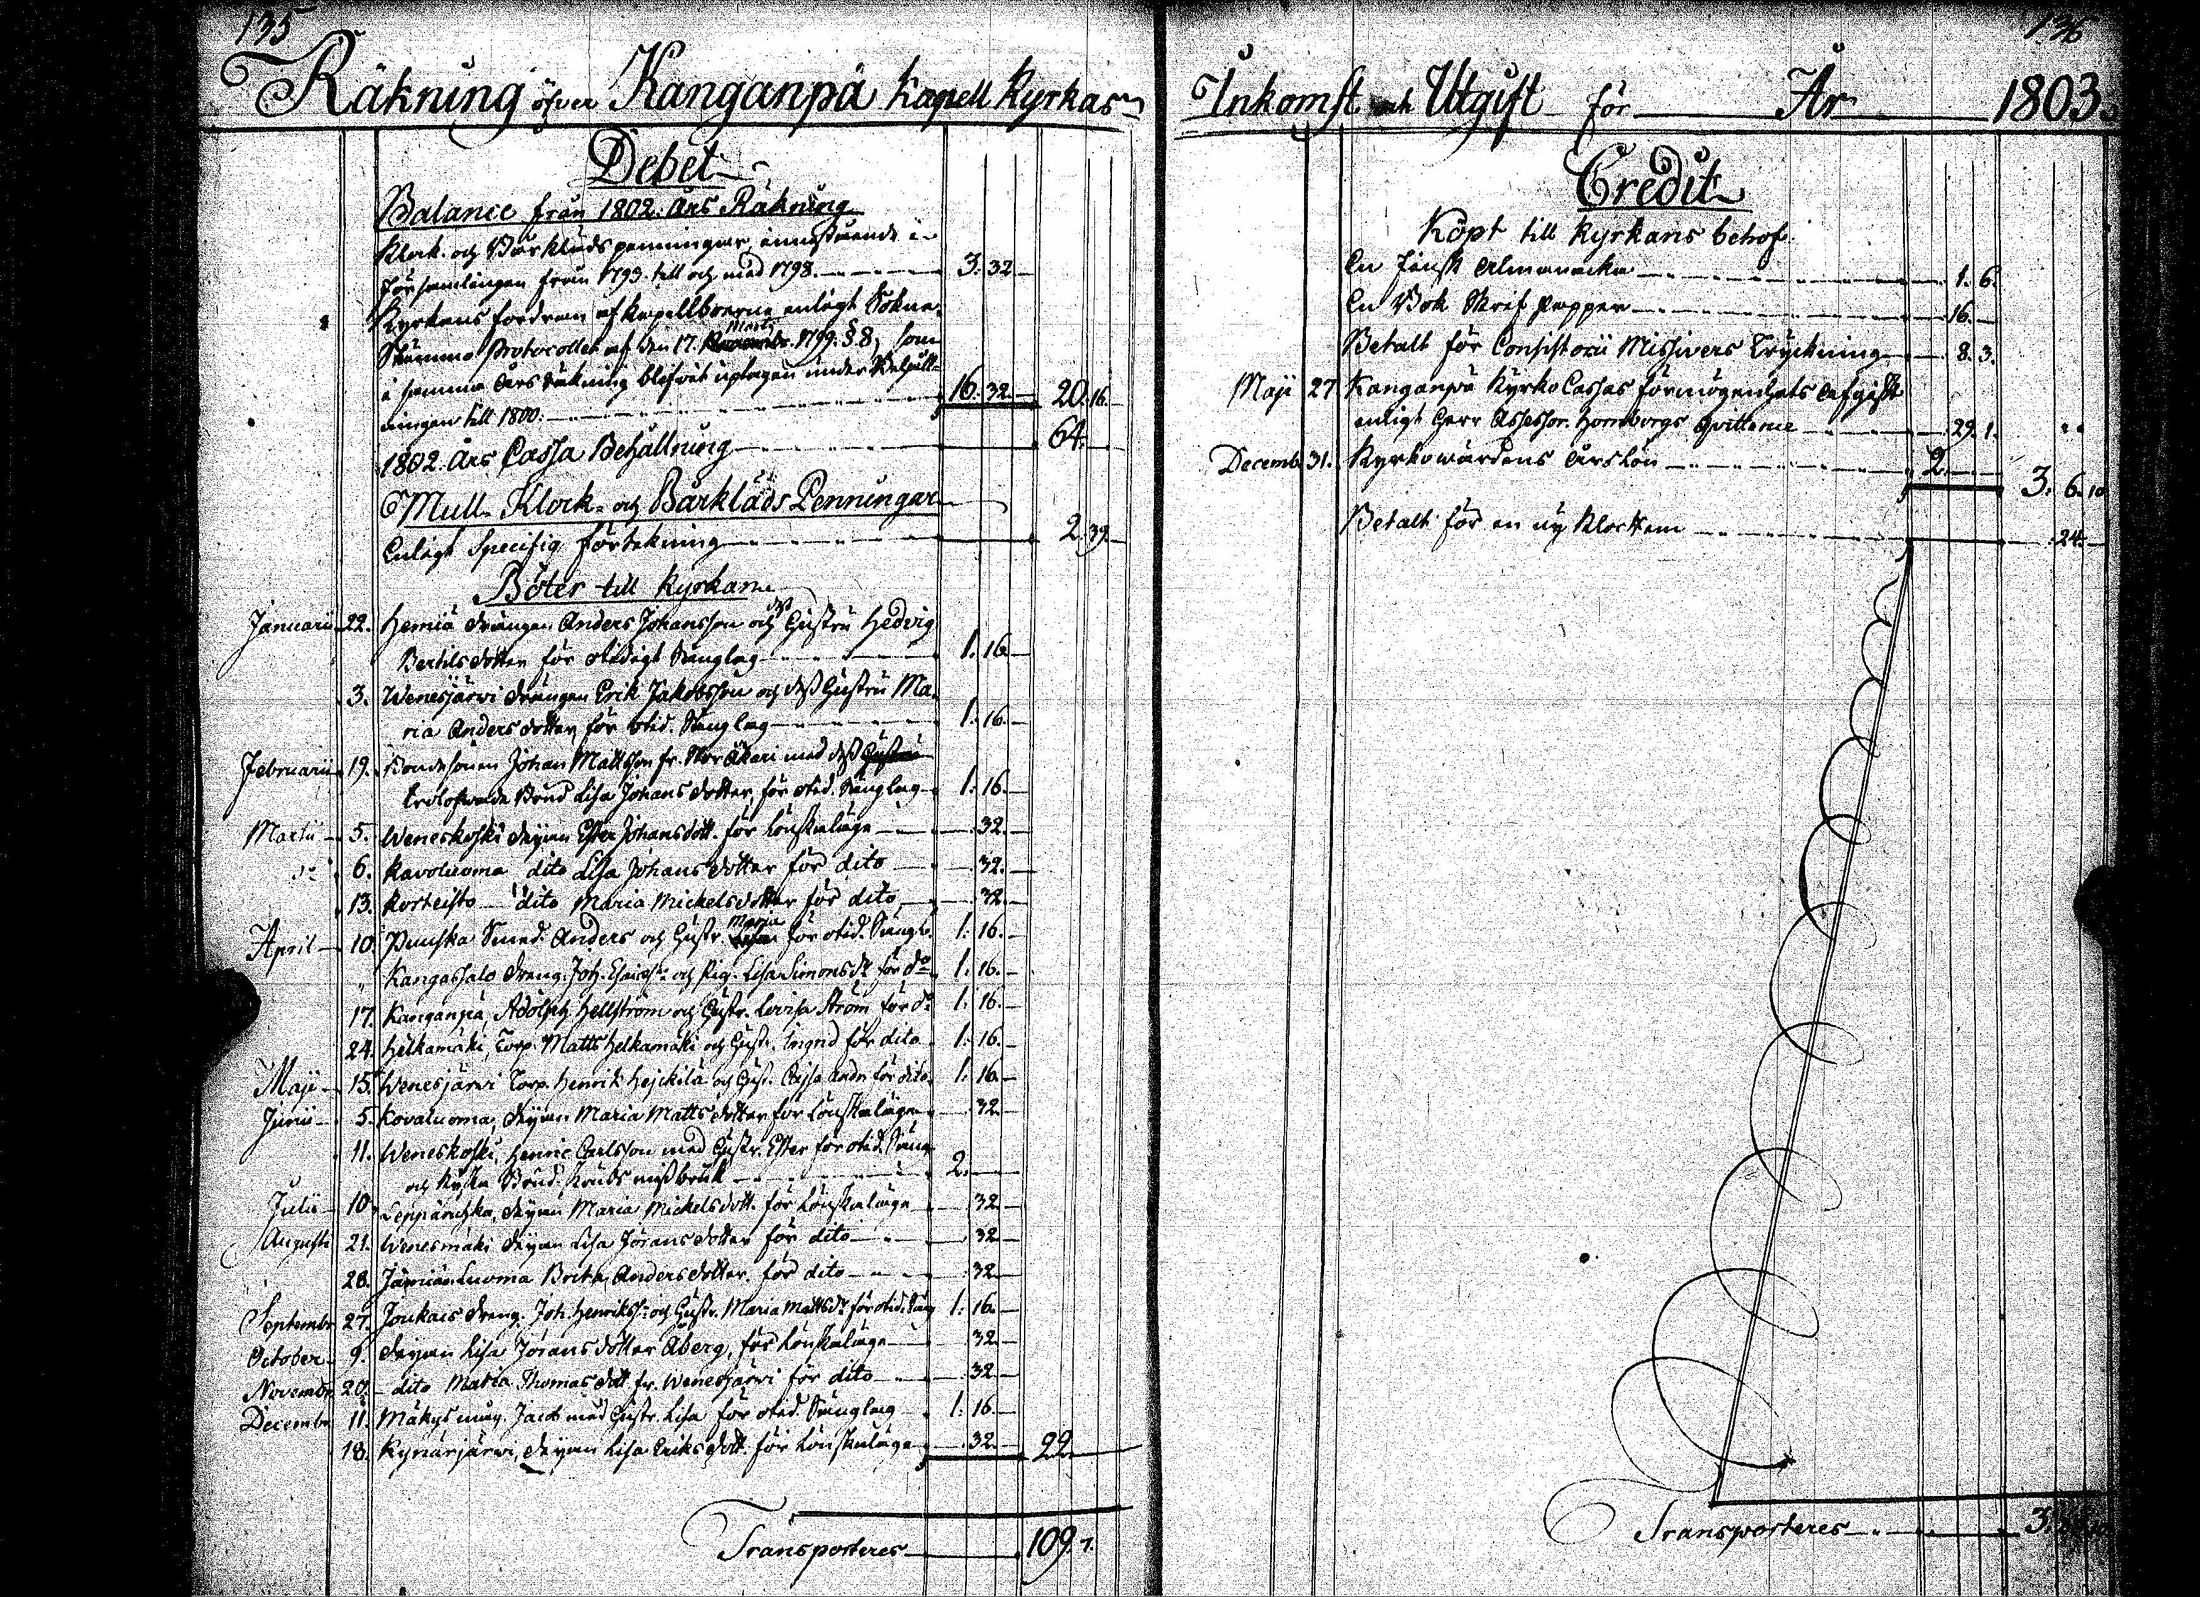 135
Räkning öfver Kanganpä Kapell Kyrkas
Debet
Balance från 1802. Års Räkning
Klock- och Bårklädspenningar, innestående i
församlingen från 1793. till och med 1798. 3. 32.
Kyrkans fordran af Kapellboerne enligt Sokne-
Stämmo Protocollet af den 17. Martii 1799. §. 8, som
i samma Års Räkning blifvit uptagen under
ningen till 1800. 16. 32. 20. 16.
1802. Års Cassa Behållning 64.
Mull- Klock- och Bårkläds Penningar
Enligt Specifiq förtekning 2. 39.
Böter till Kyrkan
Januarii 22. Hemiä Drängen Anders Johansson och dess Hustru Hedvig
Bertilsdotter för otidigt Sänglag 1. 16.
3. Wenesjärvi Drängen Erik Jakobsson och dess Hustru Ma-
ria Andersdotter för otid. Sänglag 1. 16.
Februarii 19. Bondesonen Johan Mattsson fr. med dess Hustru
trolofwade Brud Lisa Johansdotter, för otid. Sänglag 1. 16.
Martii 5. Weneskoski Pigan Ester Johansdott. för Lönskaläge 32.
6. Kavoluoma dito Lisa Johansdotter för dito 32.
13. Korteisto dito Maria Mickelsdotter för dito 32.
April 10. Smed. Anders och Hustr. Maria för otid. Sängl. 1. 16.
Kangassalo Dräng. Joh. och Pig. Lisa Simonsdr för do 1. 16.
17. Kanganpä, Adolph Hellström och Hustr. Lovisa Ström för do 1. 16.
24. Helkamäki, Torp. Matts Helkamäki och Hustr. Ingrid för dito 1. 16.
Maji 15. Wenesjärvi Torp. Henrik Hejckilä och Hust. Cajsa Andr för dito 1. 16.
Junii 5. Kovaluoma, Pigan Maria Mattsdotter för Lönskaläge 32.
11. Weneskoski, Henric Carlsson med Hustr. Ester för otid. Säng
och Kyrko Brud missbruk 2.
Julii 10. Pigan Maria Mickelsdott. för Lönskaläge 32.
Augusti 21. Wenesmäki Pigan Lisa Jöransdotter för dito 32.
28. Luoma Brita Andersdotter. för dito 32.
Septembr 27. Dräng. Joh. Henrikss: och Hustr. Maria Mattsdr för otid. Säng 1. 16.
October 9. Pigan Lisa Jöransdotter Åberg, för Lönskaläge 32.
Novembr 20. dito Maria Thomasdott fr. Wenesjärvi för dito 32.
Decembr 11. Jacob med Hustr. Lisa för otid. Sänglag 1. 16.
18. Kynärjärvi, Pigan Lisa Eriksdott. för Lönskaläge 32. 22.
Transporteres 109. 7.
136
Inkomst och Utgift för År 1803.
Credit
Köpt till Kyrkans behof
En finsk Almanacka 1. 6.
En Bok Skrif papper 16.
Betalt för Consistorii Missivers Tryckning 8. 3.
Maji 27 Kanganpä Kyrko Cassas förmögenhets Afgift
enligt Herr Assessor. Hornborgs Qvittence 29. 1.
Decemb. 31. Kyrkowärdens Årslön 2. 3. 6. 10
Betalt för en ny Klockem 24.
Transporteres 3.